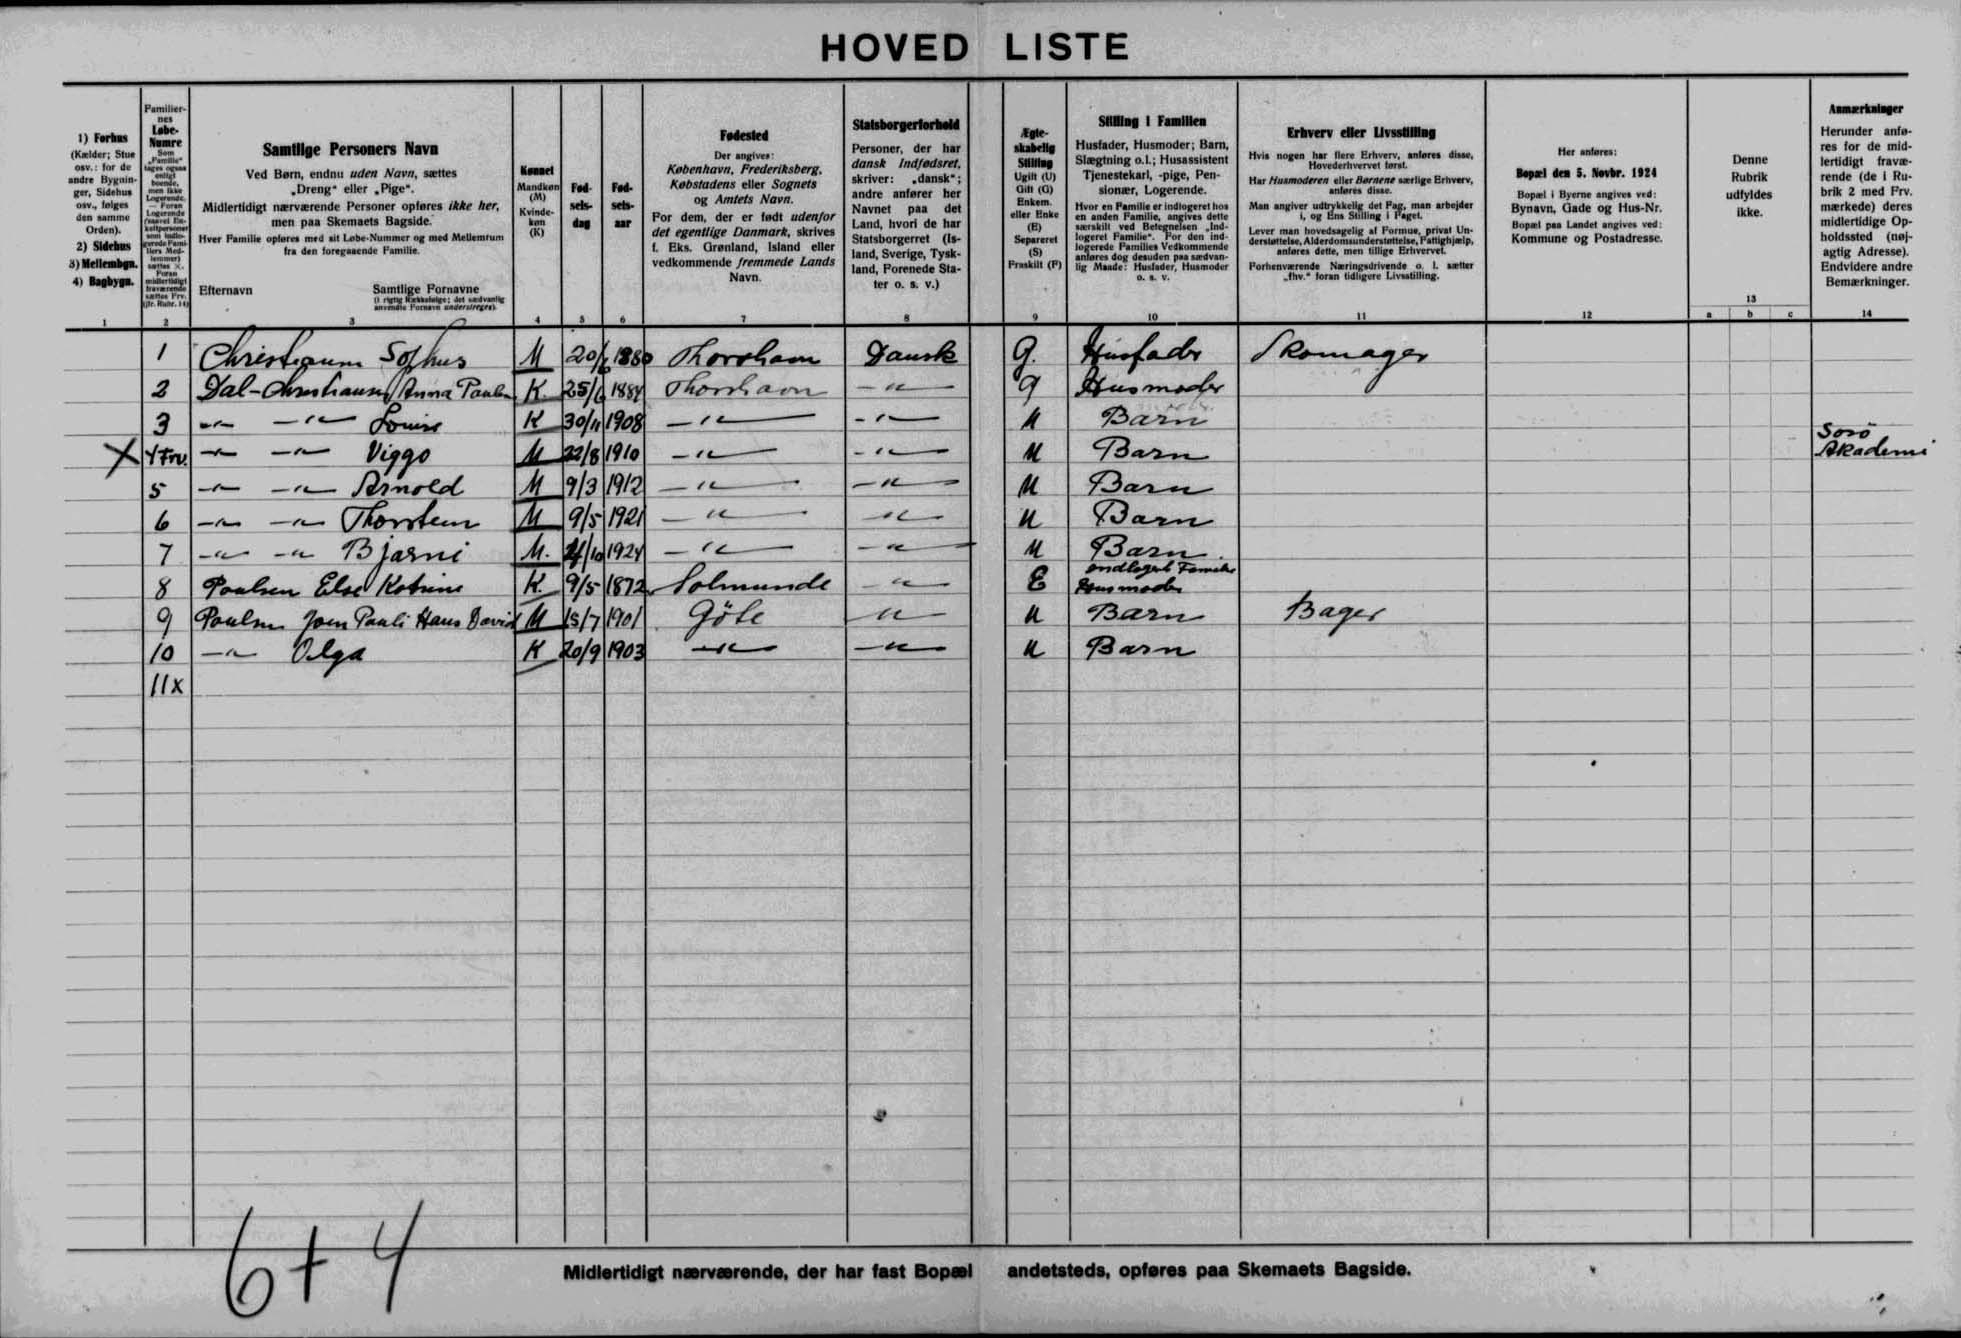 HOVED LISTE
1) Forhus
(Kælder; Stue
osv.: for de
andre Bygnin-
ger, Sidehus
osv., følges
den samme
Orden).
2) Sidehus
3) Mellembgn.
4) Bagbygn.
1
Familier-
nes
Løbe-
Numre
Som
„Familie“
tages ogsaa
enligt
boende,
men ikke
Logerende.
— Foran
Logerende
sættes ×.
Foran
midlertidigt
fraværende
sættes Frv.
(jfr. Rubr. 14)
2
Samtlige Personers Navn
Ved Børn, endnu uden Navn, sættes
„Dreng“ eller „Pige“.
Midlertidigt nærværende Personer opføres ikke her,
men paa Skemaets Bagside.
Hver Familie opføres med sit Løbe-Nummer og med Mellemrum
fra den foregaaende Familie.
Efternavn Samtlige Fornavne
(i rigtig Rækkefølge; det sædvanlig
anvendte Fornavn understreges).
3
Kønnet
Mandkøn
(M)
Kvinde-
køn
(K)
4
Fød-
sels-
dag
5
Fød-
sels-
aar
6
Fødested
Der angives:
København, Frederiksberg,
Købstadens eller Sognets
og Amtets Navn.
For dem, der er født udenfor
det egentlige Danmark, skrives
f. Eks. Grønland, Island eller
vedkommende fremmede Lands
Navn.
7
Statsborgerforhold
Personer, der har
dansk Indfødsret,
skriver: „dansk“;
andre anfører her
Navnet paa det
Land, hvori de har
Statsborgerret (Is-
land, Sverige, Tysk-
land, Forenede Sta-
ter o. s. v.)
8
Ægte-
skabelig
Stilling
Ugift (U)
Gift (G)
Enkem.
eller Enke
(E)
Separeret
(S)
Fraskilt (F)
9
Stilling i Familien
Husfader, Husmoder; Barn,
Slægtning o.l.; Husassistent
Tjenestekarl, -pige, Pen-
sionær, Logerende.
Hvor en Familie er indlogeret hos
en anden Familie, angives dette
særskilt ved Betegnelsen „Ind-
logeret Familie“. For den ind-
logerede Families Vedkommende
anføres dog desuden paa sædvan-
lig Maade: Husfader, Husmoder
o. s. v.
10
Erhverv eller Livsstilling
Hvis nogen har flere Erhverv, anføres disse,
Hovederhvervet først.
Har Husmoderen eller Børnene særlige Erhverv,
anføres disse.
Man angiver udtrykkelig det Fag, man arbejder
i, og Ens Stilling i Faget.
Lever man hovedsagelig af Formue, privat Un-
derstøttelse, Alderdomsunderstøttelse, Fattighjælp,
anføres dette, men tillige Erhvervet.
Forhenværende Næringsdrivende o. l. sætter
„fhv.“ foran tidligere Livsstilling.
11
Her anføres:
Bopæl den 5. Novbr. 1924
Bopæl i Byerne angives ved:
Bynavn, Gade og Hus-Nr.
Bopæl paa Landet angives ved:
Kommune og Postadresse.
12
Denne
Rubrik
udfyldes
ikke.
13
a b c
Anmærkninger
Herunder anfø-
res for de mid-
lertidigt fravæ-
rende (de i Ru-
brik 2 med Frv.
mærkede) deres
midlertidige Op-
holdssted (nøj-
agtig Adresse).
Endvidere andre
Bemærkninger.
14
1 Sophus M 20/ 1880 Thorshavn Dansk G. Husfader Skomager
2 Dal-Christiansen Anna K. 25/6 1884 Thorshavn -"- g Husmoder
3 -"- -"- Louise K 30/11 1908 -"- -"- U Barn
X 4 Frv. -"- -"- Viggo M 22/8 1910 -"- -"- U Barn Sorö Akademi
5 -"- -"- Arnold M 9/3 1912 -"- -"- U Barn
6 -"- -"- Thorstein M 9/5 1921 -"- -"- U Barn
7 -"- -"- Bjarni M. /10 1924 -"- -"- U Barn
8 Poulsen Else Katrine K. 9/5 1872 -"- E Husmoder
9 Poulsen Joen Pauli Hans David M 15/7 1901 Göte -"- U Barn Bager
10 -"- Olga K 20/9 1903 -"- -"- U Barn
11x
6+4
Midlertidigt nærværende, der har fast Bopæl andetsteds, opføres paa Skemaets Bagside.